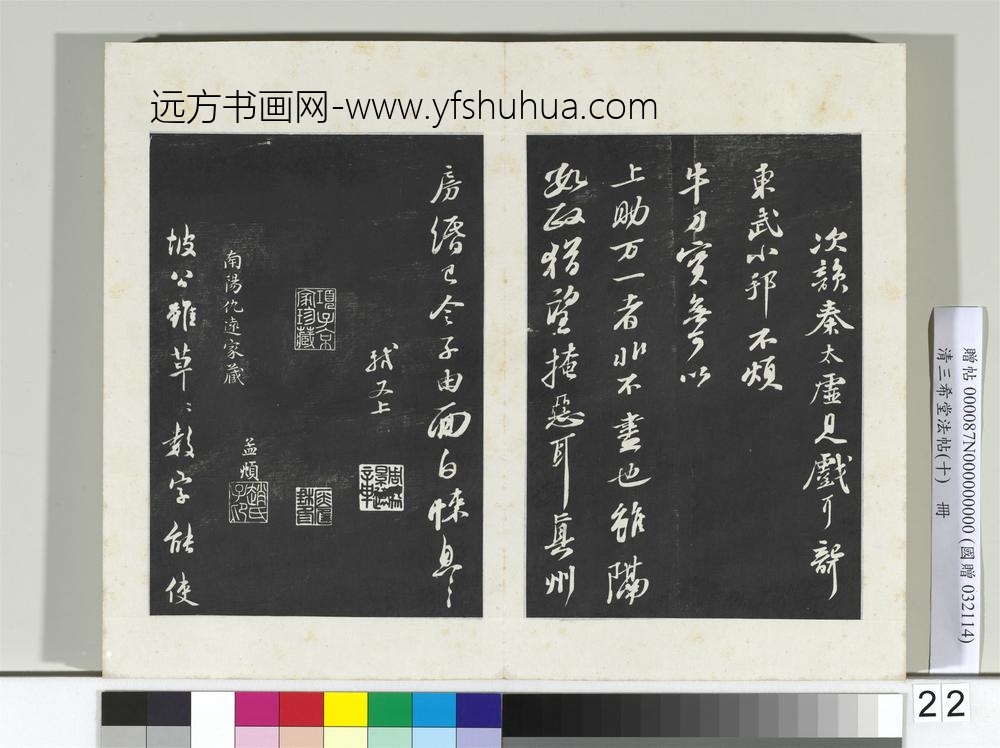 远方书画网-www.yfshuhua.com
次韻秦太虛見戲耳聾
東武小邦不煩
牛刀實無可以
上助万一者非不盡也雖隔
數政猶望掩惡耳真州
房緡已令子由面白悚息〻
軾又上
項子京家珍藏
南陽仇遠家藏
孟頫
趙氏子昂
坡公雖草〻數字能使
贈帖 000087N000000000 (國贈 032114)
清三希堂法帖(十) 冊
22